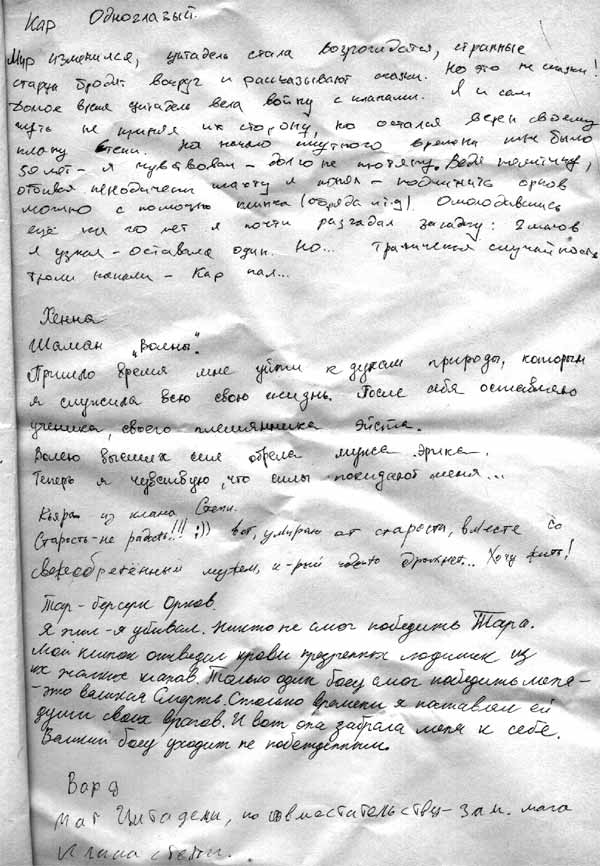 Кар Одноглазый.
Мир изменился, цитадель стала возрождатся, странные
старцы бродят вокруг и рассказывают сказки. Но это не сказки!
Долгое время цитадель вела войну с кланами. Я и сам
чуть не принял их сторону, но остался верен своему
клану Степи. На начало смутного времени мне было
50 лет - я чувствовал - долго не протяну. Ведя политику,
отбивая периодически шахту я понял - подчинить орков
можно с помощью клинка (обряда и т.д). Омолодившись
ещё на 20 лет я почти разгадал загадку: 3 магов
я узнал - оставался один. Но... Трагический случай
тролли напали - Кар пал...
Хенна
Шаман „Волны".
Пришло время мне уйти к духам природы, которым
я служила всю свою жизнь. После себя оставляю
ученика, своего племянника Эйста.
Волею высших сил обрела мужа Эрика.
Теперь я чувствую, что силы покидают меня...
Кьяра из клана Степи.
Старость - не радость!!! ;)) Вот, умираю от старости, вместе со
свежеобретённым мужем, к-рый Хочу жить!
Тар - берсерк Орков.
Я жил - я убивал. Никто не смог победить Тара.
Мой клинок отведал крови презренных людишек из
их жалких кланов. Только один боец смог победить меня -
- это великая Смерть. Столько времени я поставлял ей
души своих врагов. И вот она забрала меня к себе.
Великий боец уходит не побеждённым.
Вард
маг Цитадели, по совместительству - зам. мага
клана степи.